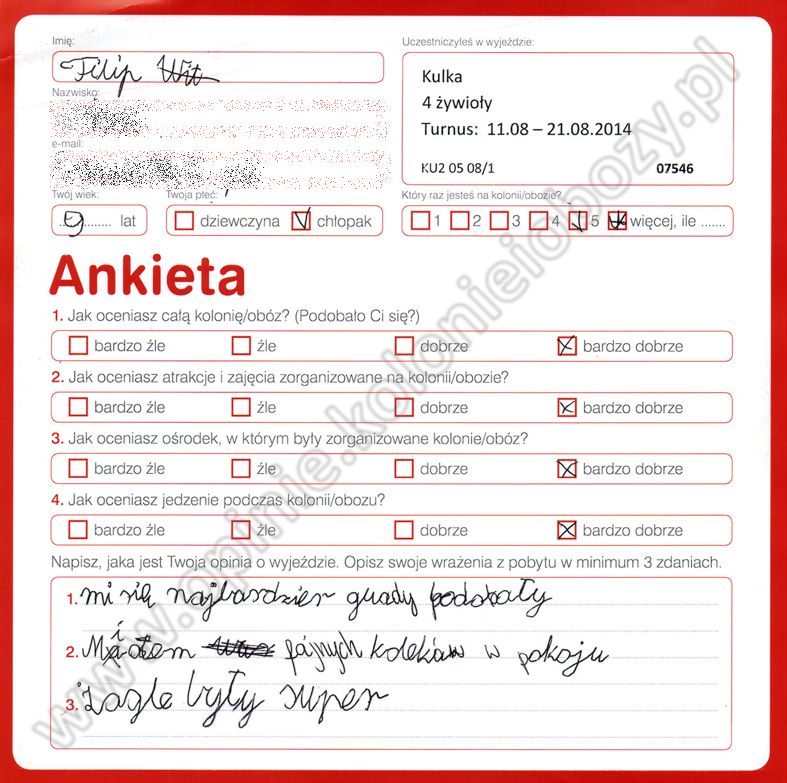 Imię:
Uczestniczyłeś w wyjeździe:
Filip Wit
Kulka
4 żywioły
Turnus: 11.08 – 21.08.2014
KU2 05 08/1 07546
Nazwisko:
e-mail:
Twój wiek:
Twoja płeć:
Który raz jesteś na kolonii/obozie?
9 lat
dziewczyna chłopak
1 2 3 4 5 więcej, ile .......
Ankieta
1. Jak oceniasz całą kolonię/obóz? (Podobało Ci się?)
bardzo źle źle dobrze bardzo dobrze
2. Jak oceniasz atrakcje i zajęcia zorganizowane na kolonii/obozie?
bardzo źle źle dobrze bardzo dobrze
3. Jak oceniasz ośrodek, w którym były zorganizowane kolonie/obóz?
bardzo źle źle dobrze bardzo dobrze
4. Jak oceniasz jedzenie podczas kolonii/obozu?
bardzo źle źle dobrze bardzo dobrze
Napisz, jaka jest Twoja opinia o wyjeździe. Opisz swoje wrażenia z pobytu w minimum 3 zdaniach.
1. mi się najbardzier quady podobały
2. Miałem fajnych kolegów w pokoju
3. żagle były super
www.opinie.kolonieiobozy.pl